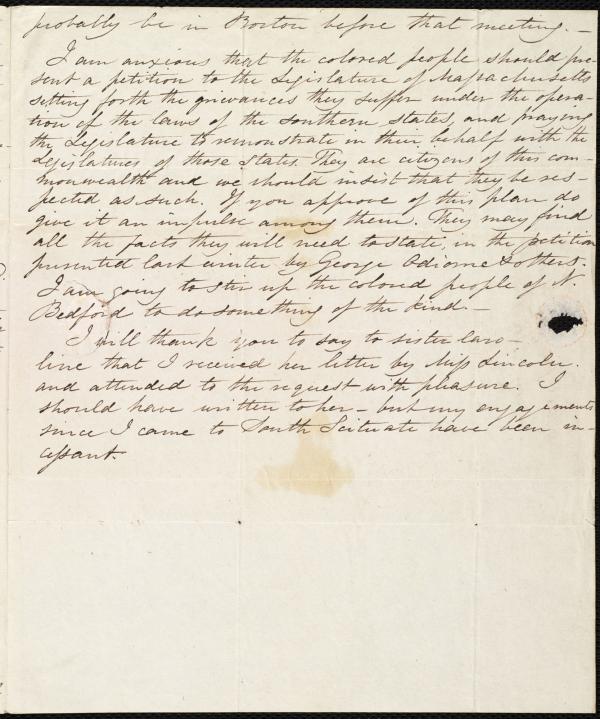 probably be in Boston before that meeting. —
I am anxious that the colored people should pre-
sent a petition to the Legislature of Massachusetts
setting forth the grievances they suffer under the opera-
tion of the laws of the southern states, and praying
the Legislature to remonstrate in their behalf with the
Legislatures of those States. They are citizens of this com-
monwealth and we should insist that they be res-
pected as such. If you approve of this plan do
give it an impulse among them. They may find
all the facts they will need to state, in the petition
presented last winter by George Odiorne & others.
I am going to stir up the colored people of N.
Bedford to do something of the kind. —
I will thank you to say to sister Caro-
line that I received her letter by Miss Lincoln.
and attended to the request with pleasure. I
should have written to her — but my engagements
since I came to South Scituate have been in-
cessant.